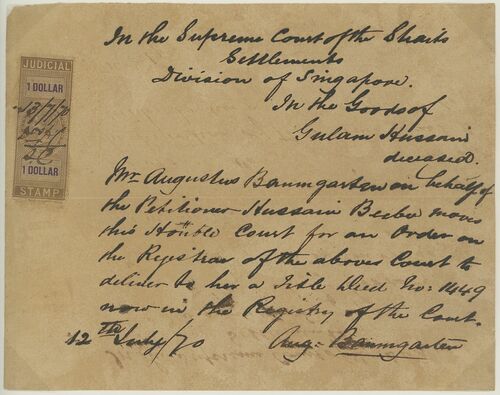 In the Supreme Court of the Straits
Settlements
Division of Singapore.
In the Goods of
Gulam Hussain
deceased.
JUDICIAL
1 DOLLAR
13/7/70
1 DOLLAR
STAMP
Mr Augustus Baumgarten on behalf of
the Petitioner Hussain Beebee moves
this Honble Court for an Order on
the Registrar of the above Court to
deliver to her a Title Deed No: 1449
now in the Registry of the Court.
12th July/70 Aug: Baumgarten